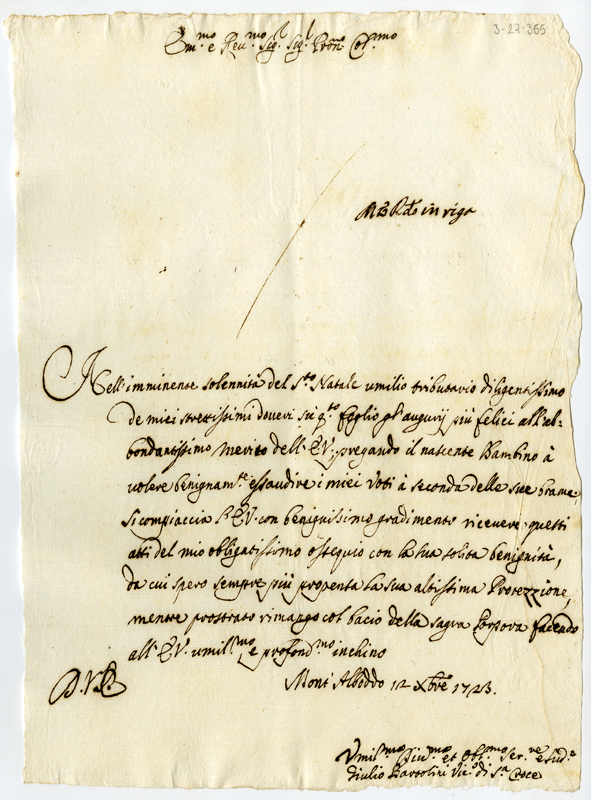 3-27-365
Em.mo e Reu.mo Sig.r Sig.r Pron Col.mo
in riga
Nell'imminente solennità del S.to Natale umilio tributario diligentissimo
de miei strettissimi doueri su q.to foglio gl'augurij più felici all'ab=
bondantissimo merito dell'E.V., pregando il nascente Bambino à
uolere benignam.te essaudire i miei Voti à seconda delle sue brame;
Si compiaccia l'E.V. con benignissimo gradimento riceuere questi
atti del mio obligatissimo ossequio con la sua solita benignità,
da cui spero sempre più propensa la sua altissima Protezzione,
mentre prostrato rimango col bacio della sagra Porpora facendo
all'E.V. umil.mo e profond.mo inchino
D. V. E.
Mont'Alboddo 12 Xbre 1723.
Vmil.mo Diu.mo et Obl.mo Ser.re e Sud.o
Giulio Bartolini Vic.o di S.a Croce